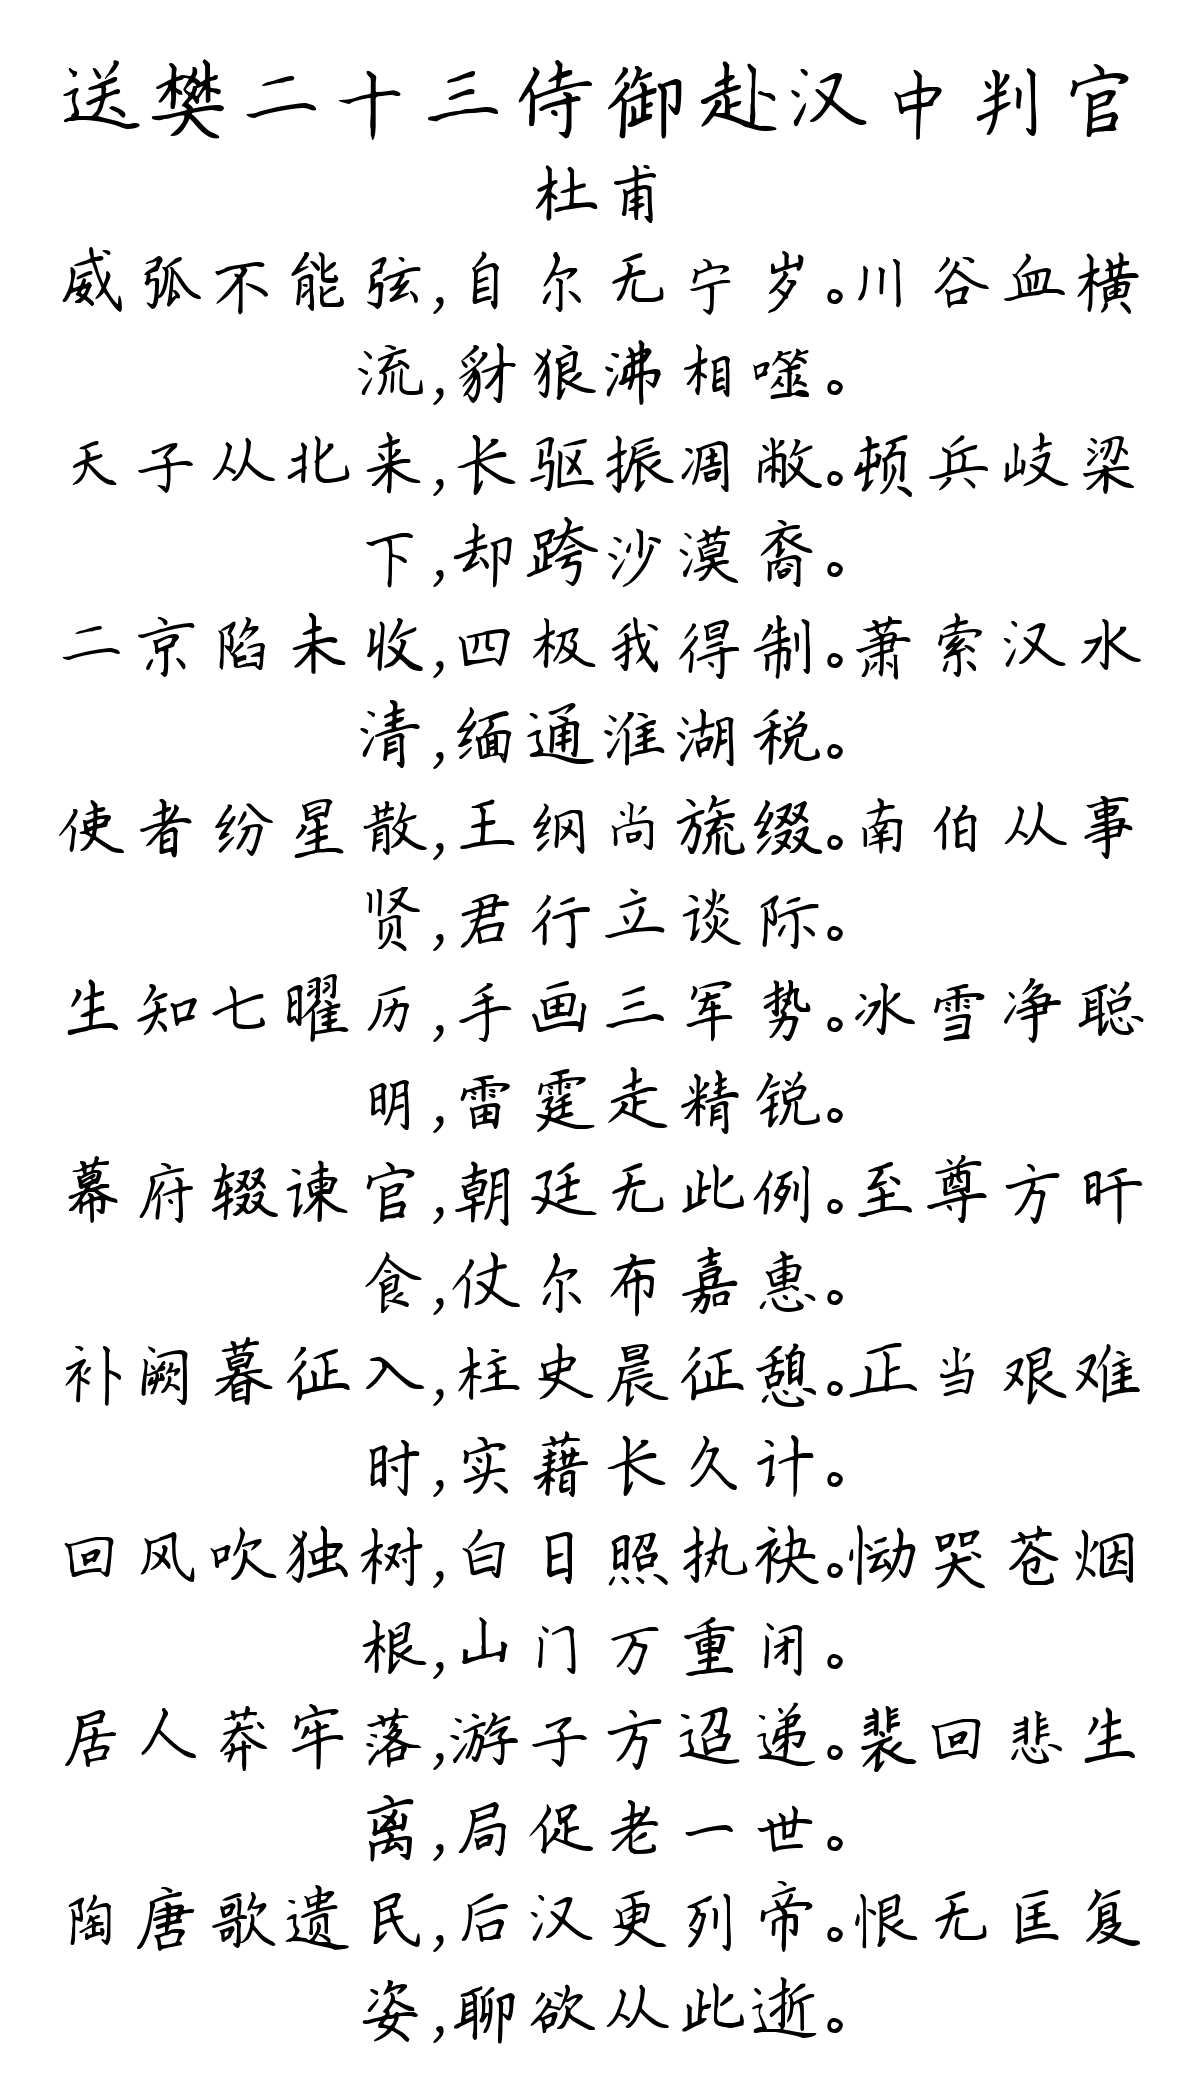 送樊二十三侍御赴汉中判官
杜甫
威弧不能弦,自尔无宁岁。川谷血横
流,豺狼沸相噬。
天子从北来,长驱振凋敝。顿兵岐梁
下,却跨沙漠裔。
二京陷未收,四极我得制。萧索汉水
清,缅通淮湖税。
使者纷星散,王纲尚旒缀。南伯从事
贤,君行立谈际。
生知七曜历,手画三军势。冰雪净聪
明,雷霆走精锐。
幕府辍谏官,朝廷无此例。至尊方旰
食,仗尔布嘉惠。
补阙暮征入,柱史晨征憩。正当艰难
时,实藉长久计。
回风吹独树,白日照执袂。恸哭苍烟
根,山门万重闭。
居人莽牢落,游子方迢递。裴回悲生
离,局促老一世。
陶唐歌遗民,后汉更列帝。恨无匡复
姿,聊欲从此逝。